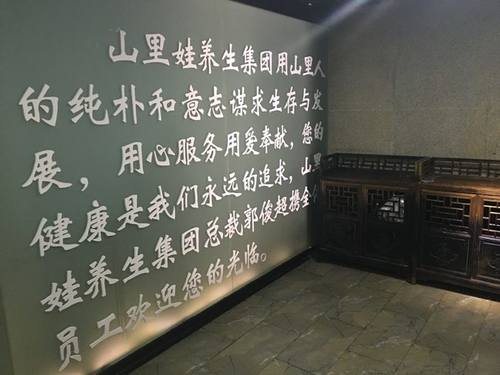 山里娃养生集团用山里人
的纯朴和意志谋求生存与发
展，用心服务用爱奉献，您的
健康是我们永远的追求，山里
娃养生集团总裁郭俊超携全体
员工欢迎您的光临。